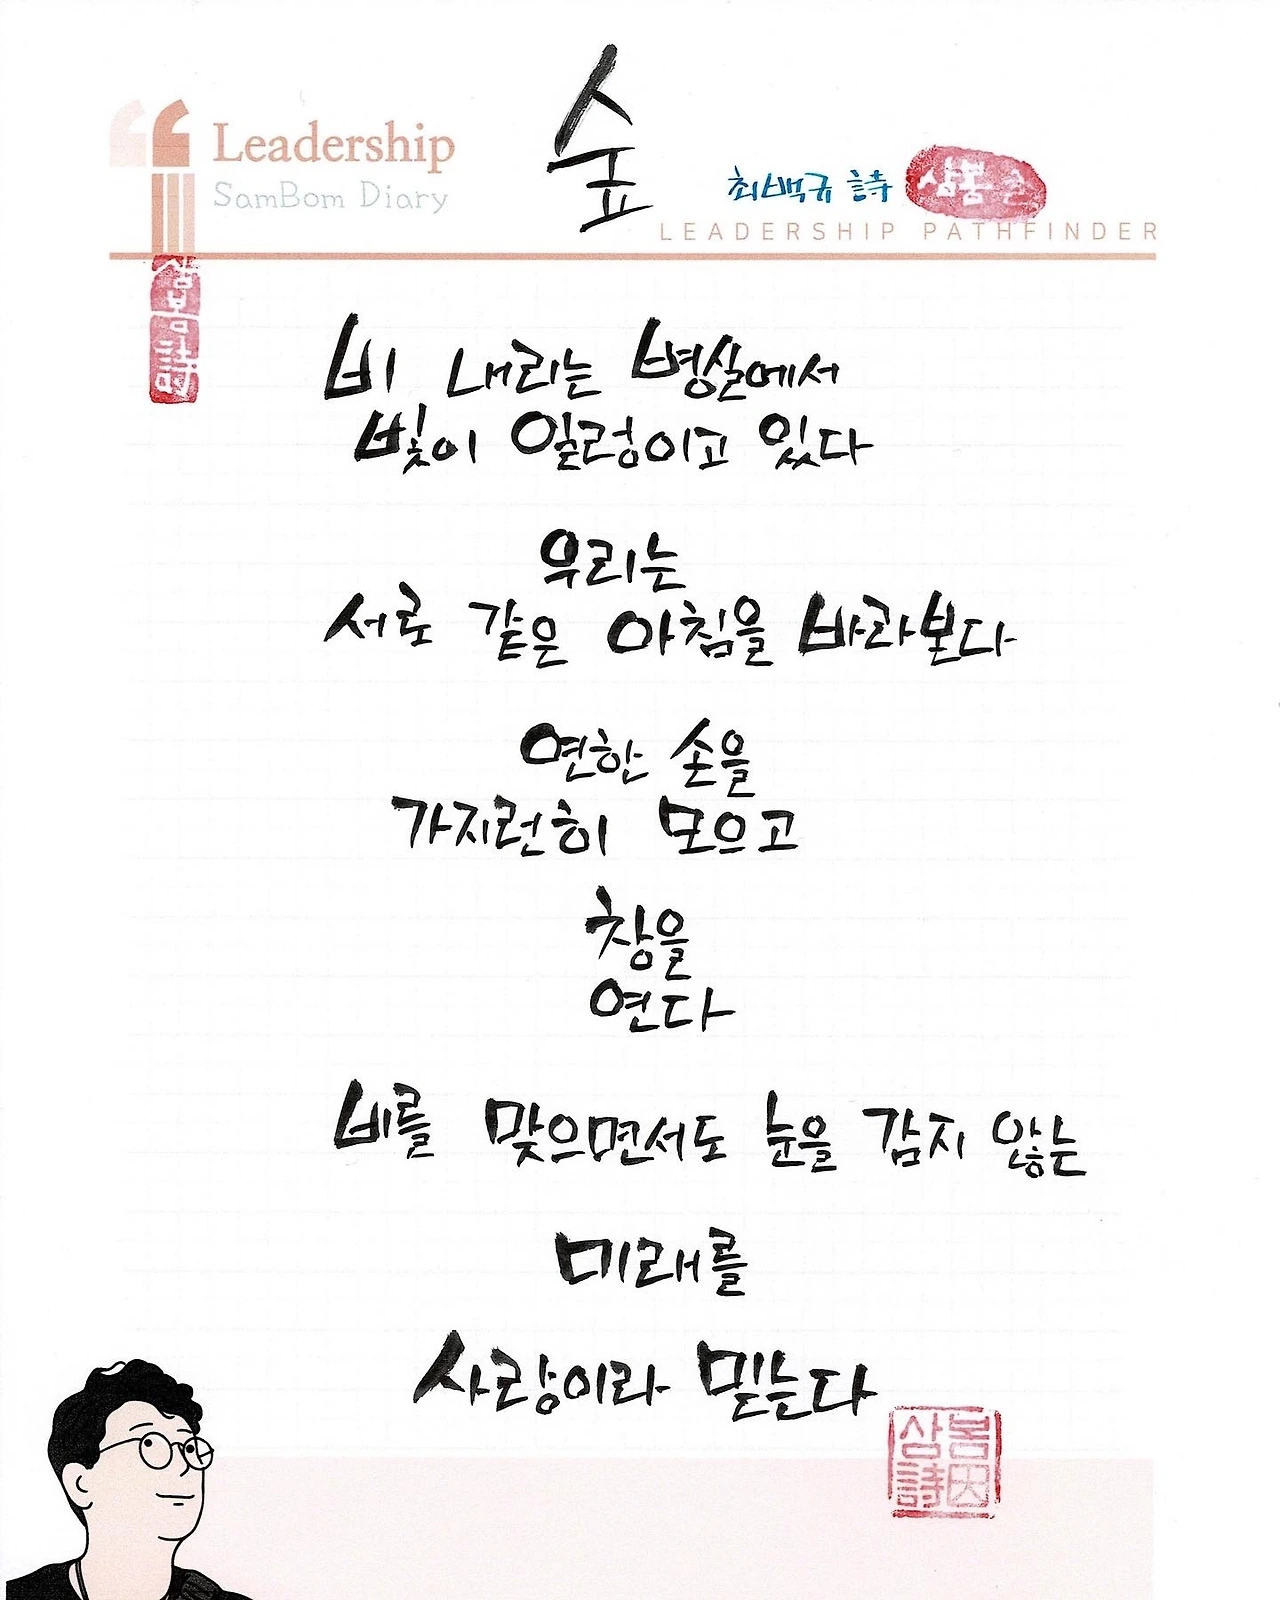 숲
Leadership
SamBom Diary
최백규 詩
삼봄
LEADERSHIP PATHFINDER
삼봄詩
비 내리는 병실에서
빛이 일렁이고 있다
우리는
서로 같은 아침을 바라본다
연한 손을
가지런히 모으고
창을
연다
비를 맞으면서도 눈을 감지 않는
미래를
사랑이라 믿는다
삼봄
詩